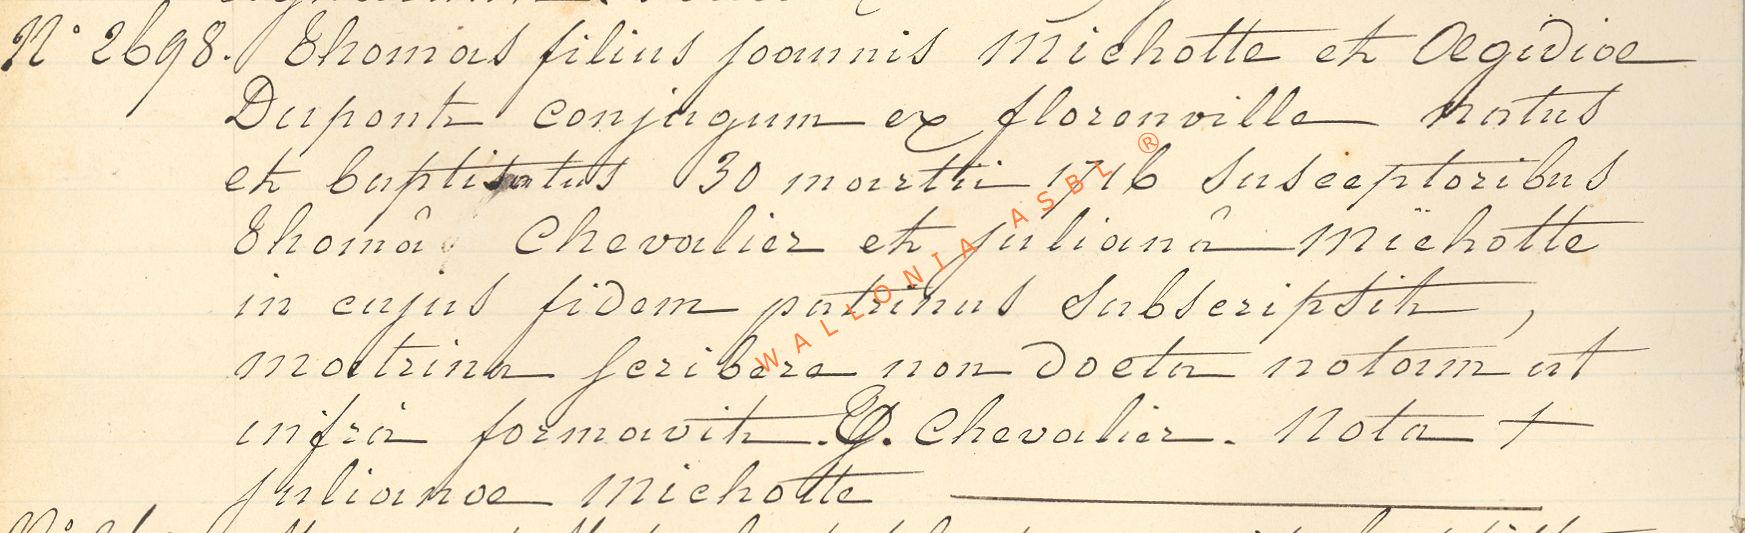 N° 2698. Thomas filius joannis Michotte et Ægidiæ
Dupont conjugum ex florenville natus
et baptisatus 30 martii 1716 Susceptoribus
Thomâ Chevalier et julianâ Mïchotte
in cujus fidem patrinus Subscripsit,
matrina Scribere non docta notam ut
infrà formavit. Chevalier. Nota +
julianæ Michotte
WALLONIA ASBL ®